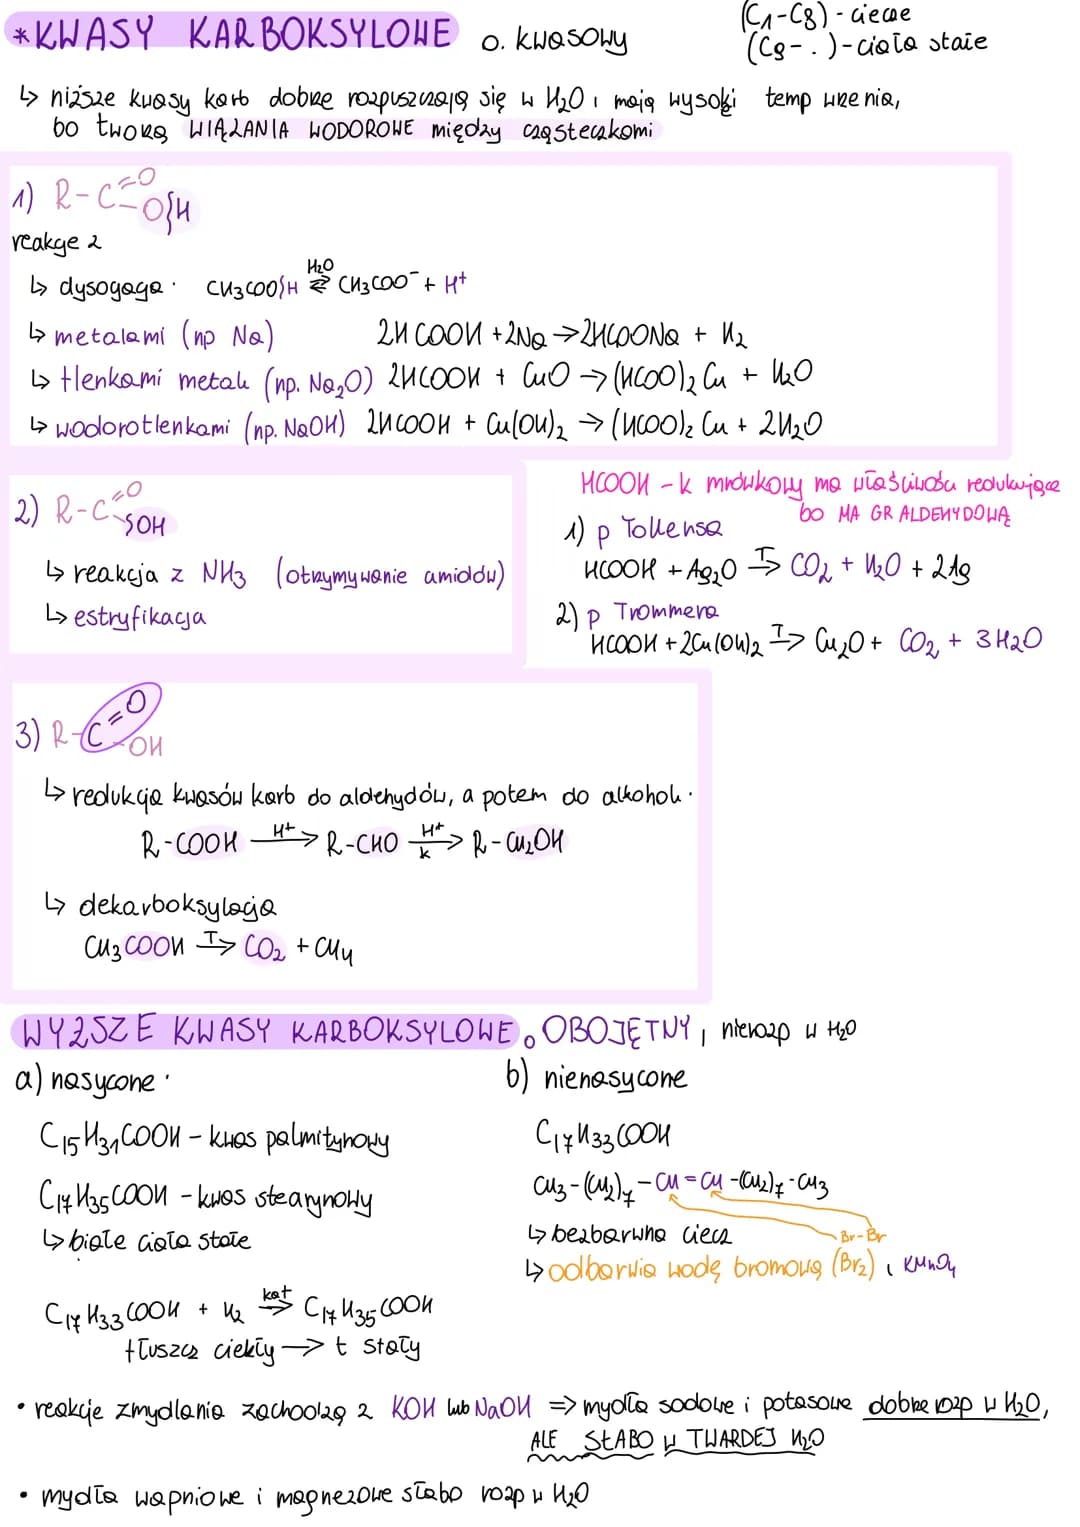 *KWASY KARBOKSYLOWE o. kwasowy
(C₁-C₈) - ciecze
(C₉-..)-ciała stałe
↳ niższe kwasy karb dobrze rozpuszczają się w H₂O i mają wysoki temp wrzenia,
bo tworzą WIĄZANIA WODOROWE między cząsteczkami
1) R-C=O
-O⌇H
reakcje z
↳ dysocjacja · CH₃COO⌇H ⇄ CH₃COO⁻ + H⁺
H₂O
↳ metalami (np Na) 2HCOOH + 2Na → 2HCOONa + H₂
↳ tlenkami metali (np. Na₂O) 2HCOOH + CuO → (HCOO)₂Cu + H₂O
↳ wodorotlenkami (np. NaOH) 2HCOOH + Cu(OH)₂ → (HCOO)₂Cu + 2H₂O
2) R-C=O
⌇OH
↳ reakcja z NH₃ (otrzymywanie amidów)
↳ estryfikacja
HCOOH - k mrówkowy ma właściwości redukujące
bo MA GR ALDEHYDOWĄ
1) p Tollensa
HCOOH + Ag₂O T→ CO₂ + H₂O + 2Ag
2) p Trommera
HCOOH + 2Cu(OH)₂ T→ Cu₂O + CO₂ + 3H₂O
3) R-C=O
-OH
↳ redukcja kwasów karb do aldehydów, a potem do alkoholi·
R-COOH H⁺→ R-CHO H⁺→ R-CH₂OH
k
↳ dekarboksylacja
CH₃COOH T→ CO₂ + CH₄
WYŻSZE KWASY KARBOKSYLOWE o OBOJĘTNY, nierozp w H₂O
a) nasycone·
C₁₅H₃₁COOH - kwas palmitynowy
C₁₇H₃₅COOH - kwas stearynowy
↳ białe ciała stałe
C₁₇H₃₃COOH + H₂ kat→ C₁₇H₃₅COOH
tłuszcz ciekły → t stały
b) nienasycone
C₁₇H₃₃COOH
CH₃-(CH₂)₇-CH=CH-(CH₂)₇-CH₃
Br-Br
↳ bezbarwna ciecz
↳ odbarwia wodę bromową (Br₂) i KMnO₄
• reakcje zmydlania zachodzą z KOH lub NaOH => mydła sodowe i potasowe dobrze rozp w H₂O,
ALE SŁABO W TWARDEJ H₂O
• mydła wapniowe i magnezowe słabo rozp w H₂O